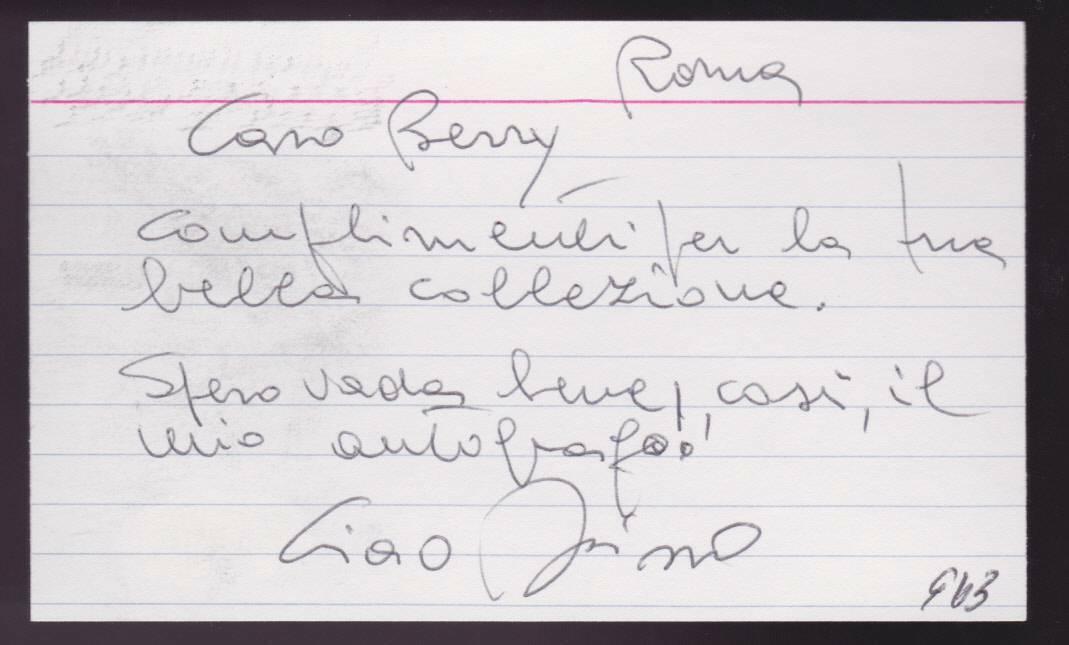 Roma
Caro Berry
complimenti per la tua
bella collezione.
Spero vada bene, così, il
mio autografo!
Ciao